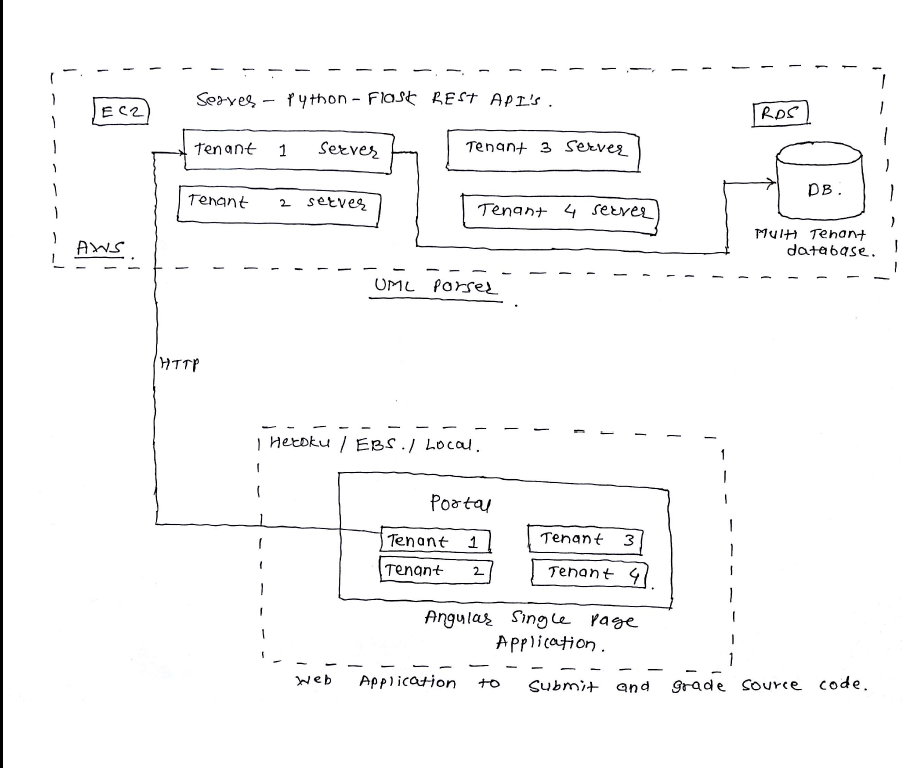 EC2
Server - Python - Flask REST API's.
RDS
Tenant 1 Server
Tenant 3 Server
Tenant 2 server
Tenant 4 server
DB.
Multi Tenant
database.
AWS.
UML Parser.
HTTP
Heroku / EBS. / Local.
Portal
Tenant 1
Tenant 3
Tenant 2
Tenant 4.
Angular Single Page
Application.
Web Application to submit and grade source code.